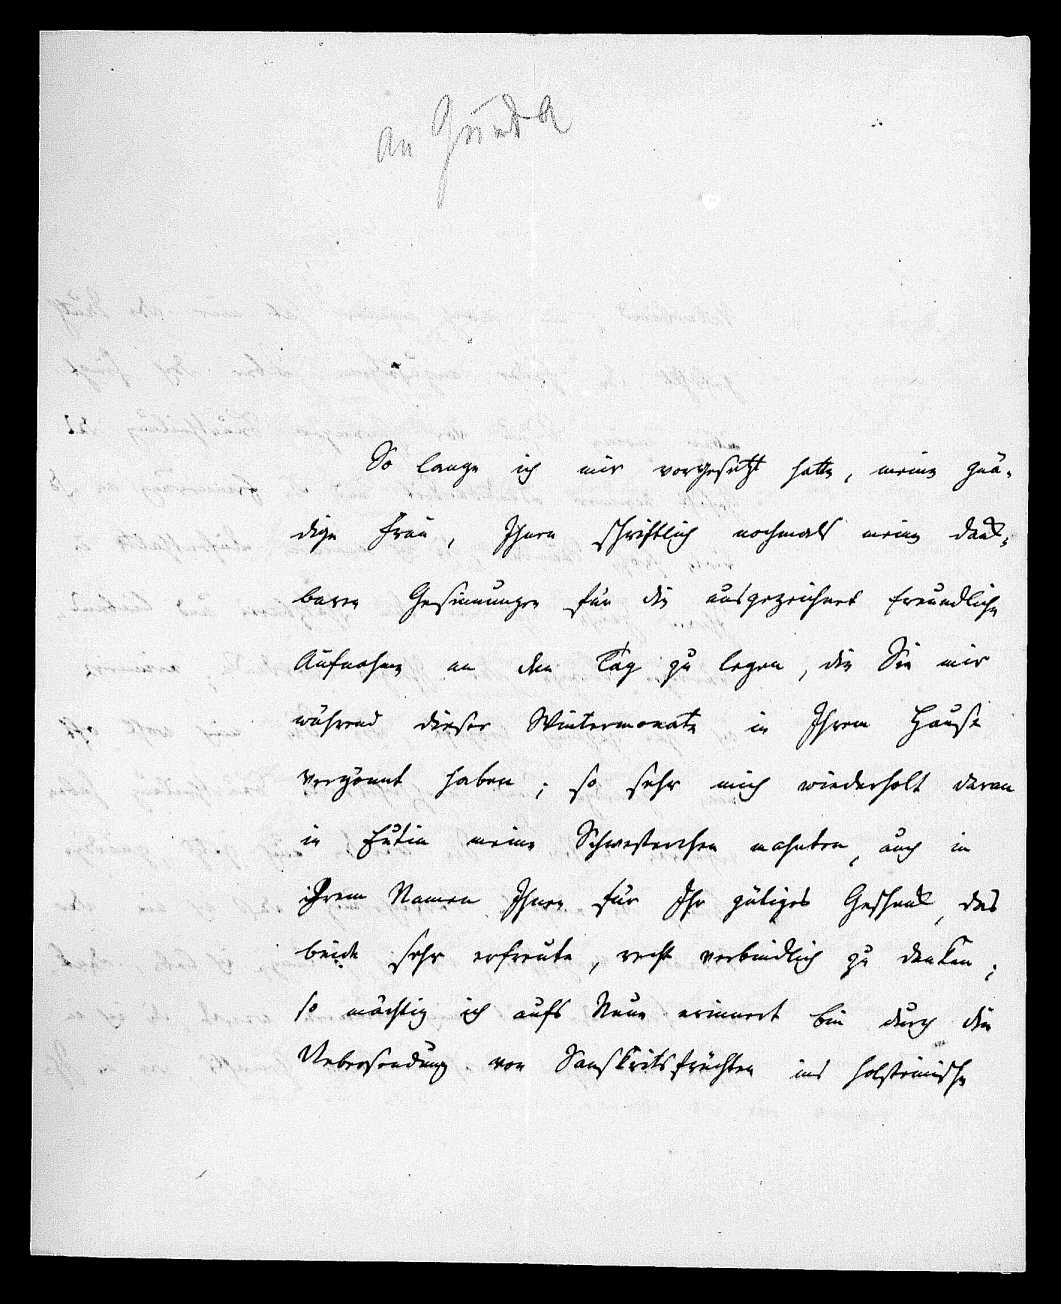 An Gurda
So lange ich mir vorgesetzt hatte, meine gnä-
dige Frau, Ihnen schriftlich nochmals meine dank-
baren Gesinnungen für die ausgezeichnet freundliche
Aufnahme an den Tag zu legen, die Sie mir
während dieser Wintermonate in Ihrem Hause
vergönnt haben; so sehr mich wiederholt daran
in Eutin meine Schwesterchen mahnten, auch in
ihrem Namen Ihnen für Ihr gütiges Geschenk, das
beide sehr erfreute, recht verbindlich zu danken;
so mächtig ich aufs Neue erinnert bin durch die
Uebersendung von Sanskritsfrüchten ins holsteinische